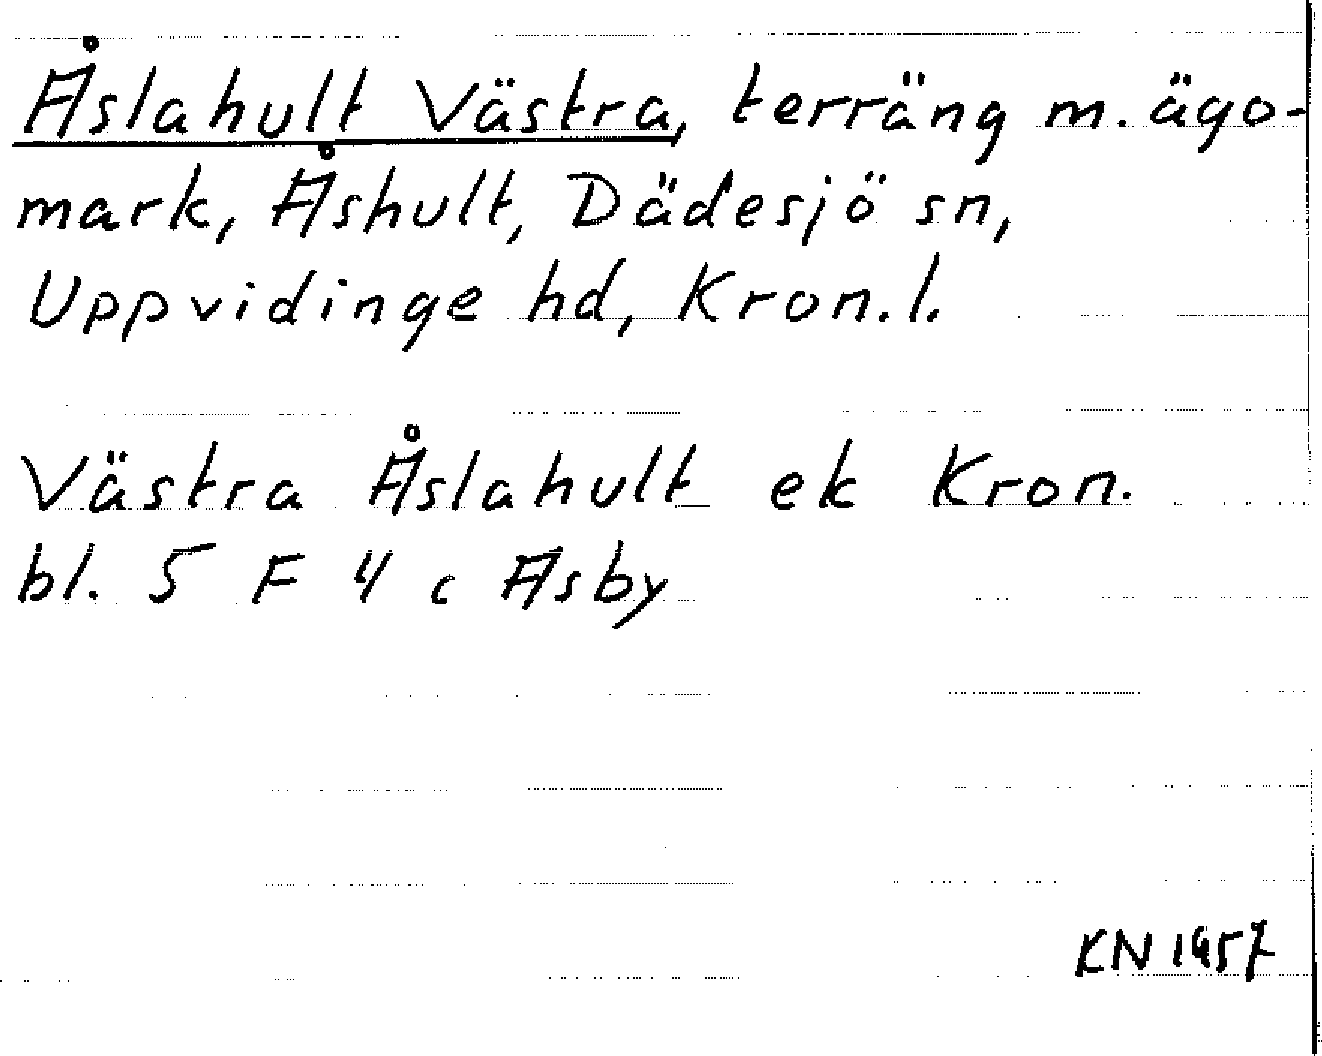 Åslahult Västra, terräng m. ägo-
mark, Åshult, Dädesjö sn,
Uppvidinge hd, Kron.l.
Västra Åslahult ek Kron.
bl. 5 F 4 c Asby
KN 1957